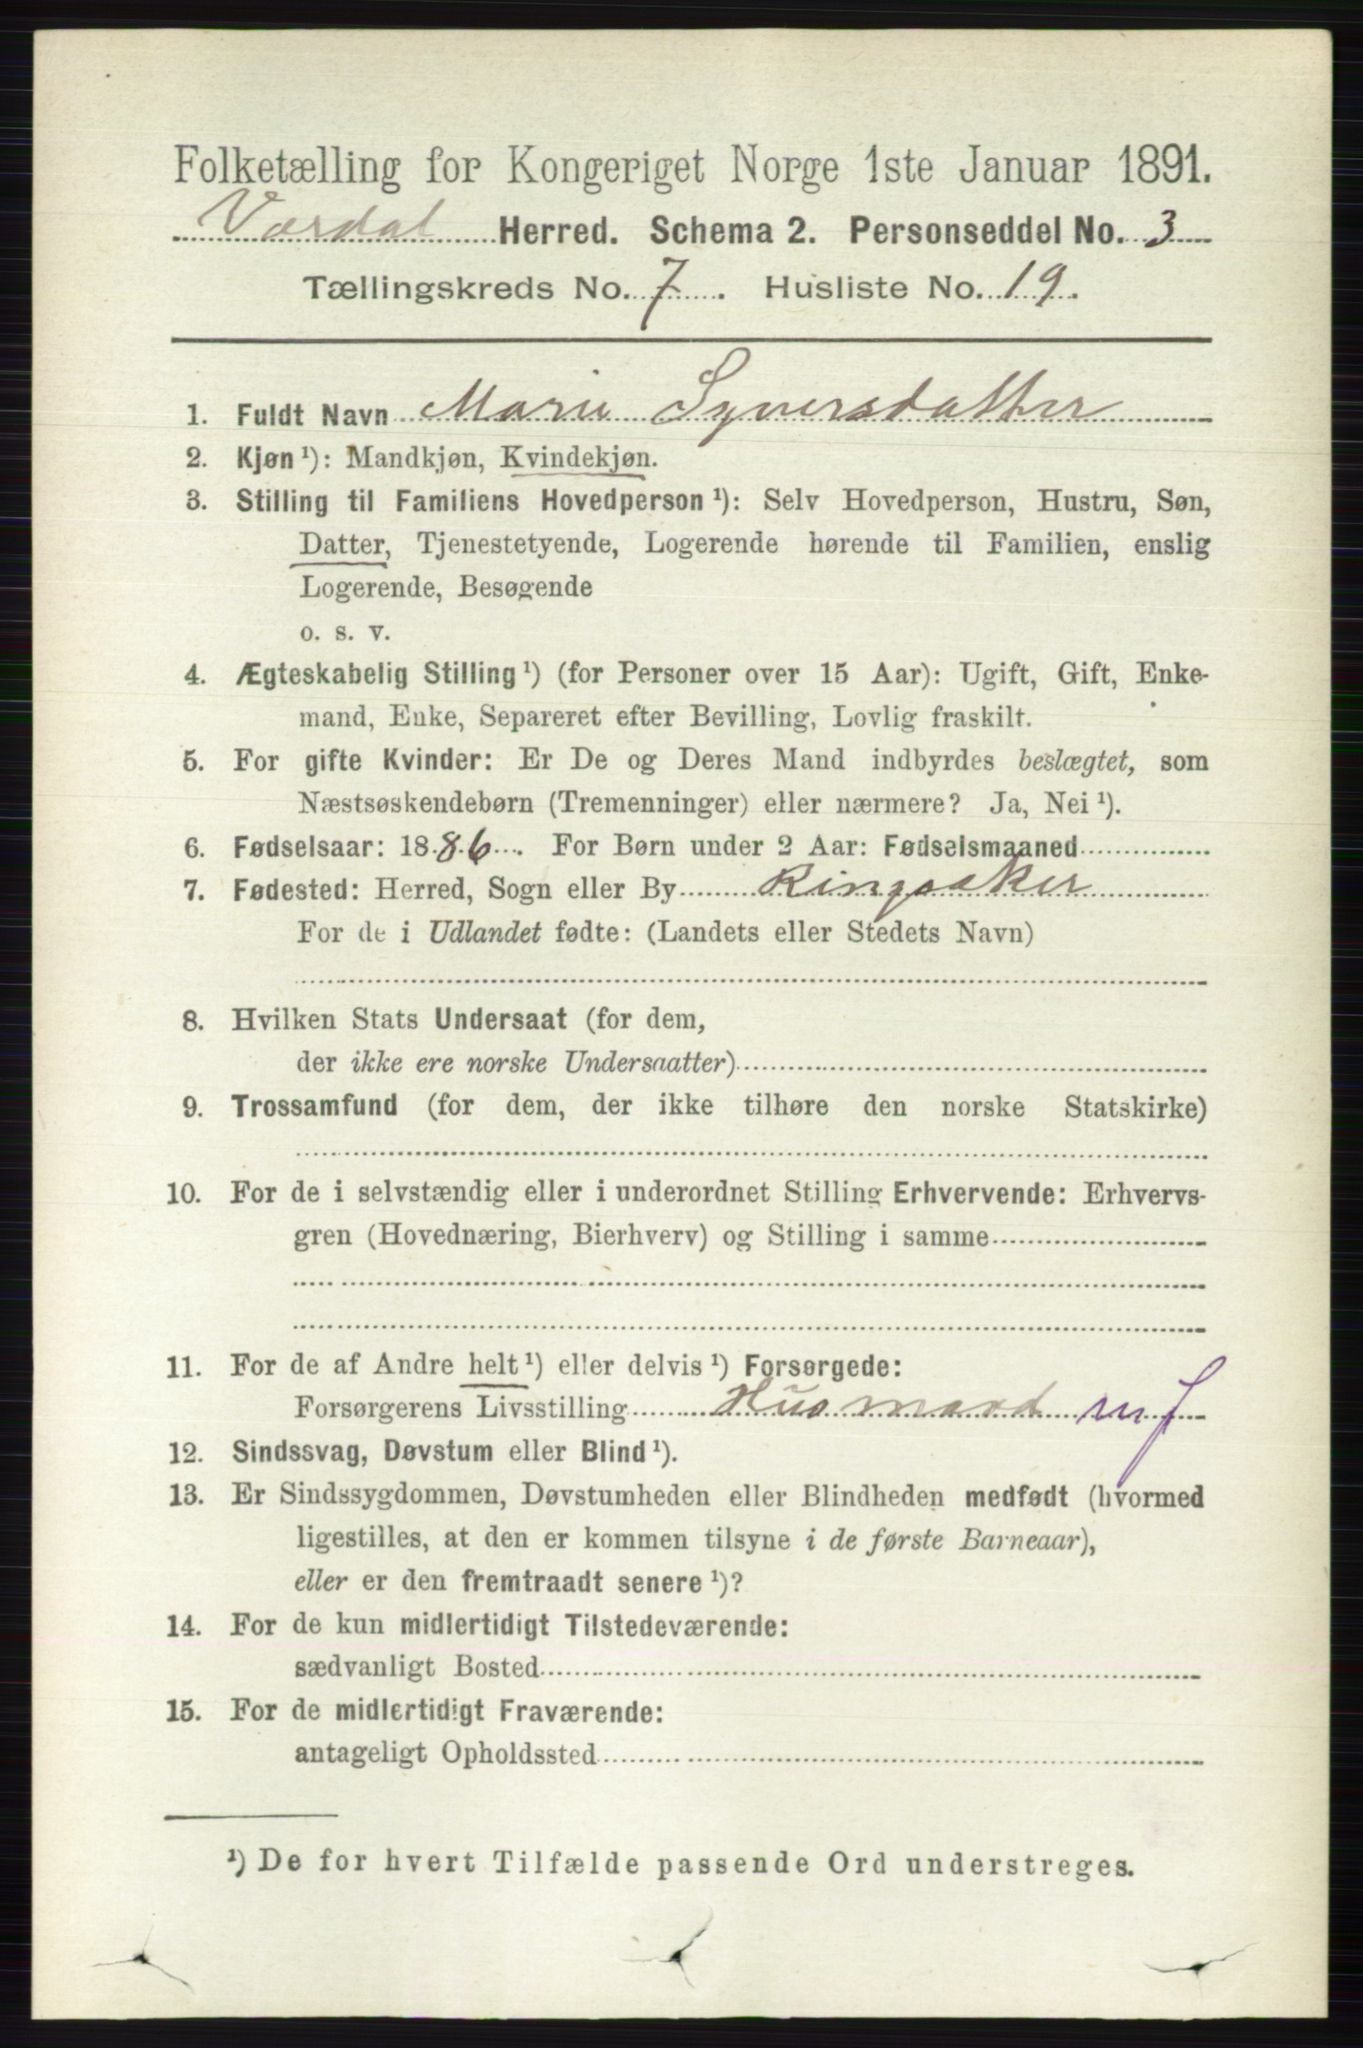 Folketælling for Kongeriget Norge 1ste Januar 1891.
Vardal Herred. Schema 2. Personseddel No. 3
Tællingskreds No. 7. Husliste No. 19.
1. Fuldt Navn Marie Syversdatter
2. Kjøn ¹): Mandkjøn, Kvindekjøn.
3. Stilling til Familiens Hovedperson ¹): Selv Hovedperson, Hustru, Søn,
Datter, Tjenestetyende, Logerende hørende til Familien, enslig
Logerende, Besøgende
o. s. v.
4. Ægteskabelig Stilling ¹) (for Personer over 15 Aar): Ugift, Gift, Enke-
mand, Enke, Separeret efter Bevilling, Lovlig fraskilt.
5. For gifte Kvinder: Er De og Deres Mand indbyrdes beslægtet, som
Næstsøskendebørn (Tremenninger) eller nærmere? Ja, Nei ¹).
6. Fødselsaar: 1886. For Børn under 2 Aar: Fødselsmaaned
7. Fødested: Herred, Sogn eller By Ringsaker
For de i Udlandet fødte: (Landets eller Stedets Navn)
8. Hvilken Stats Undersaat (for dem,
der ikke ere norske Undersaatter)
9. Trossamfund (for dem, der ikke tilhøre den norske Statskirke)
10. For de i selvstændig eller i underordnet Stilling Erhvervende: Erhvervs-
gren (Hovednæring, Bierhverv) og Stilling i samme
11. For de af Andre helt ¹) eller delvis ¹) Forsørgede:
Forsørgerens Livsstilling Husmand mJ
12. Sindssvag, Døvstum eller Blind ¹).
13. Er Sindssygdommen, Døvstumheden eller Blindheden medfødt (hvormed
ligestilles, at den er kommen tilsyne i de første Barneaar),
eller er den fremtraadt senere ¹)?
14. For de kun midlertidigt Tilstedeværende:
sædvanligt Bosted
15. For de midlertidigt Fraværende:
antageligt Opholdssted
¹) De for hvert Tilfælde passende Ord understreges.